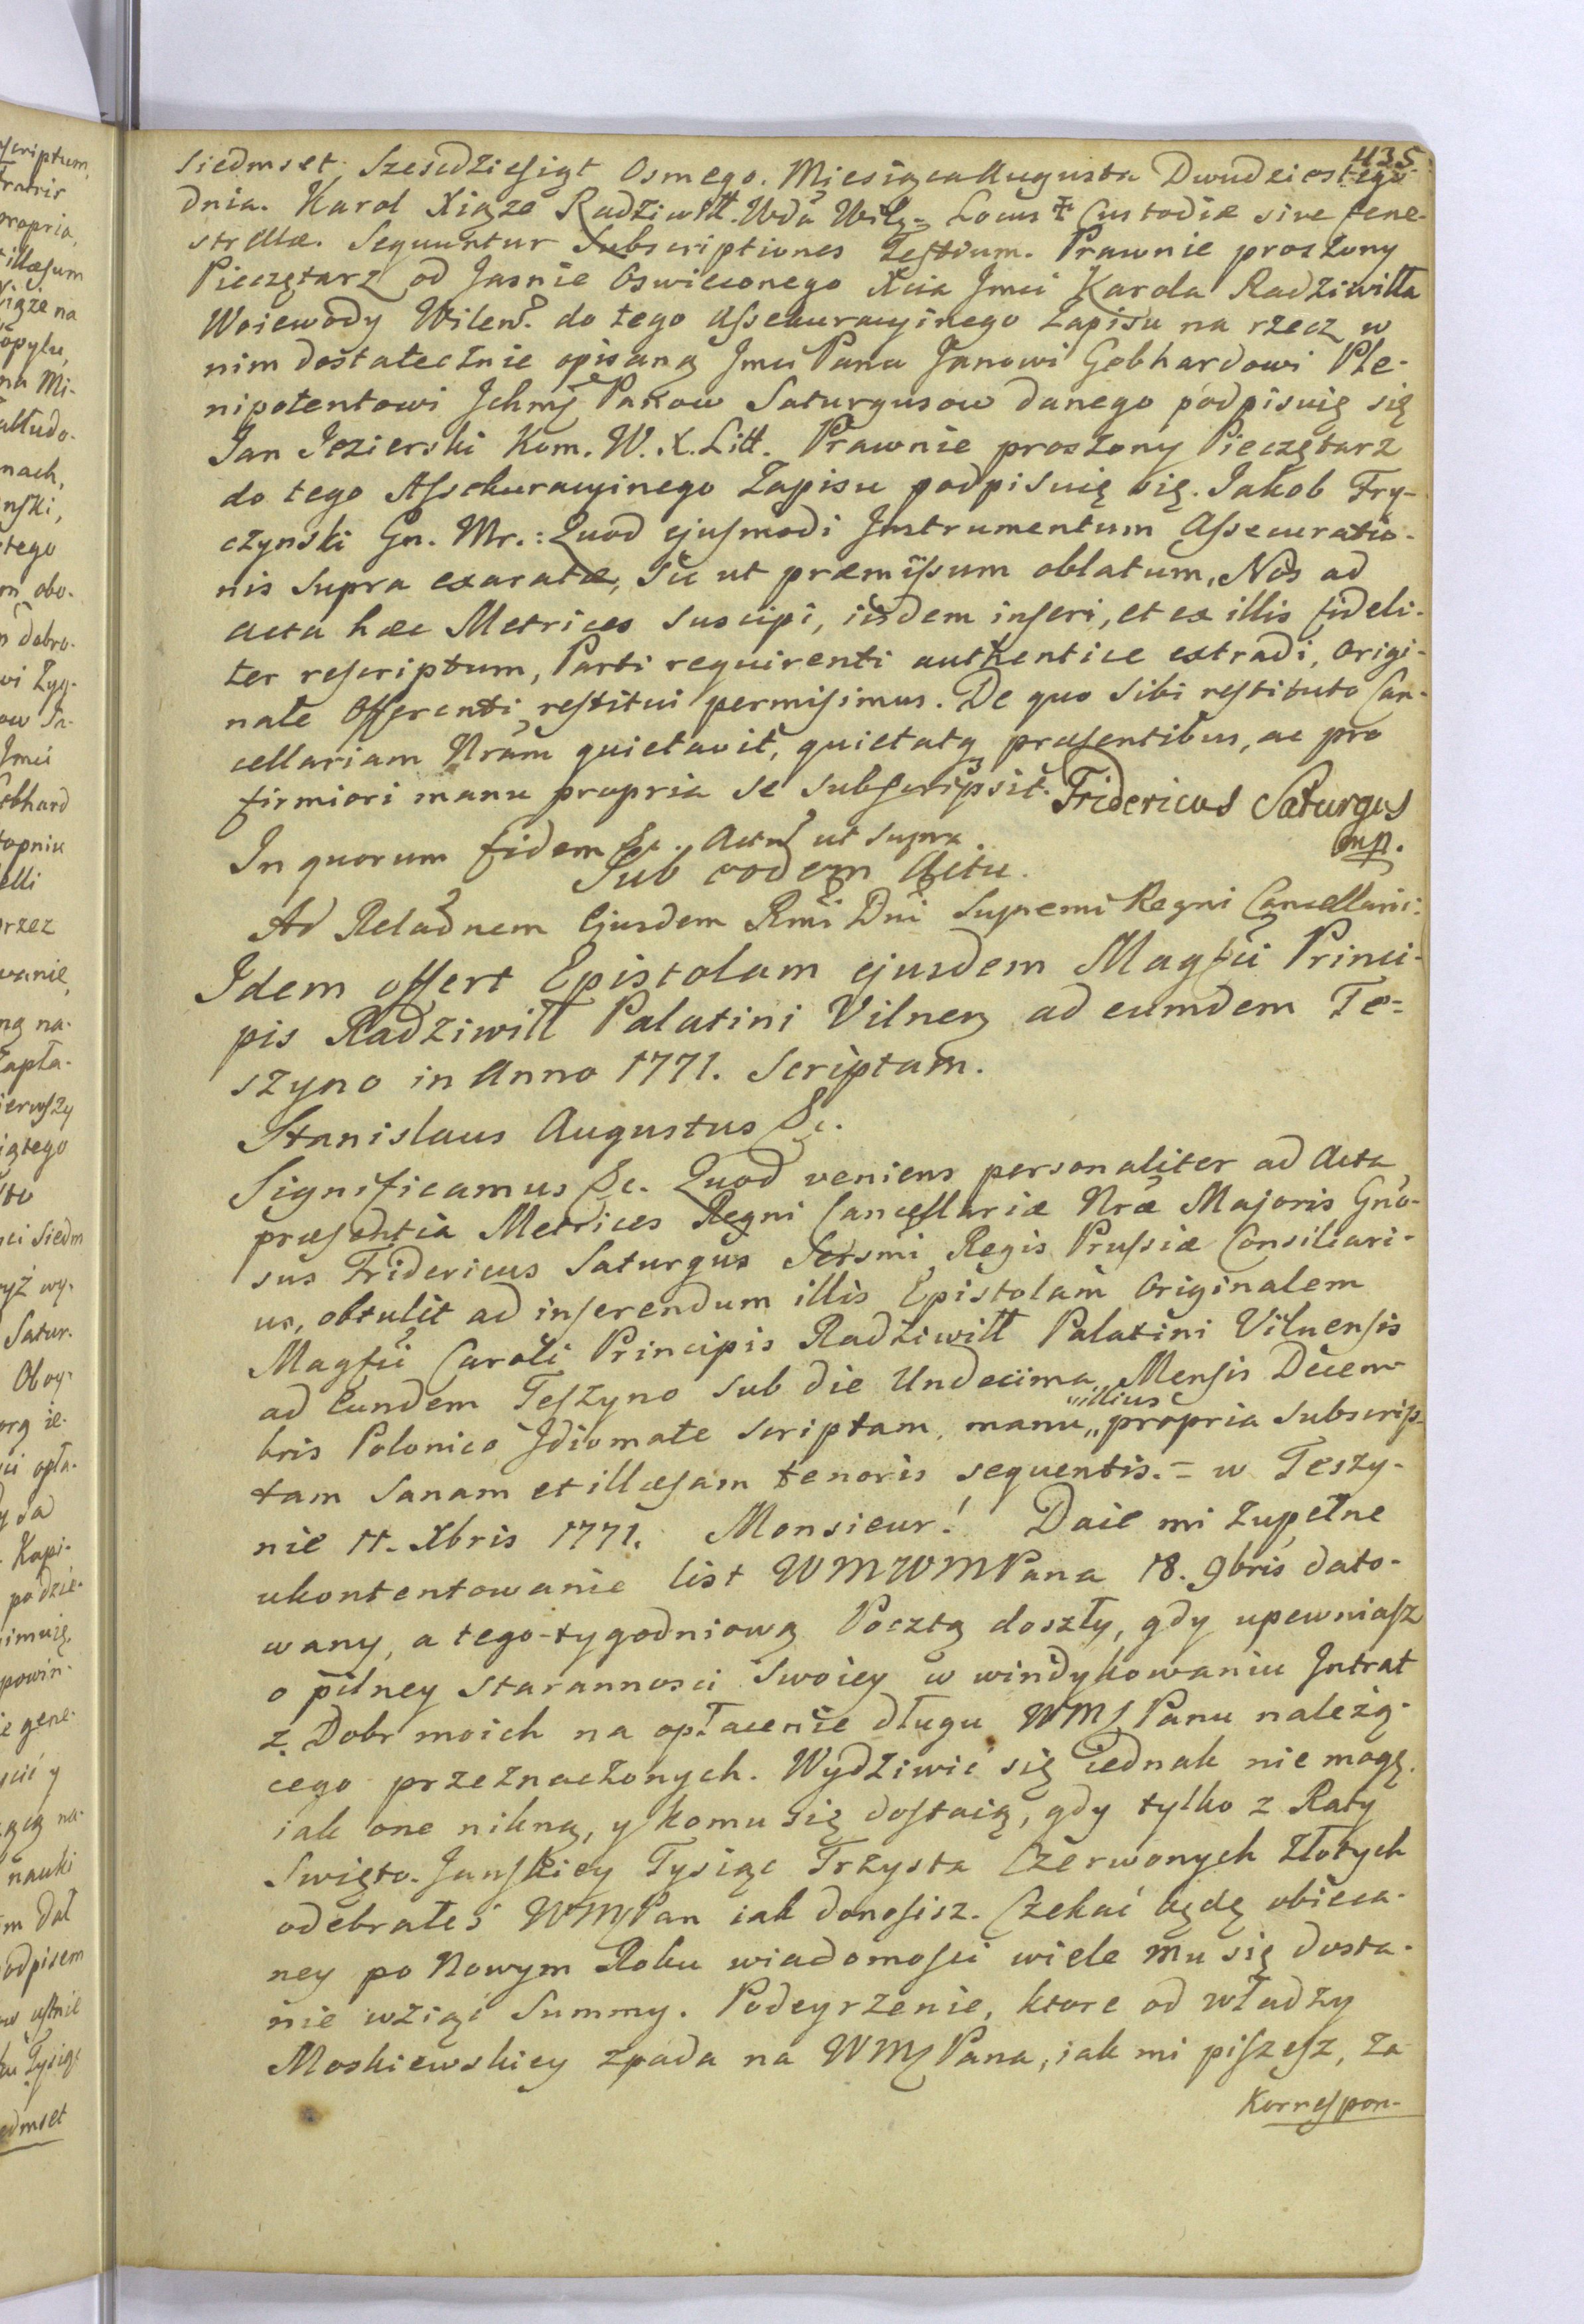 435
Siedmset Szescdziesiąt Osmego. Miesiąca Augusta Dwudziestego
dnia. Karol Xiąże Radziwiłł. Wda Wilę= Locus ‡ Custodiæ sive fene-
strellæ. Sequuntur Subscriptiones Testium. Prawnie proszony
Pieczętarz od Jasnie Oswieconego Xcia Jmci Karola Radziwiłła
Woiewody Wileń. do tego Assekuracyinego Zapisu na rzecz w
nim dostatecznie opisaną Jmci Panu Janowi Gebhardowi Ple-
nipotentowi Ichmć Panow Saturgusow danego podpisuię się
Jan Jezierski Kom. W. X. Litt. Prawnie proszony Pieczętarz
do tego Assekuracyinego Zapisu podpisuię się. Jakob Fry-
czynski Gn. Mr.: Quod ejusmodi Instrumentum Assecuratio-
nis supra exaratæ, sic ut præmissum oblatum, Nos ad
acta hæc Metrices suscipi, iisdem inseri, et ex illis fideli-
ter rescriptum, Parti requirenti authentice extradi, Origi-
nale Offerenti restitui permisimus. De quo sibi restituto Can-
cellariam Nram quietavit, quietatq præsentibus, ac pro
firmiori manu propria se subscripsit. Fridericus Saturgus
mp.
In quorum fidem &c. Actū ut supra.
Sub eodem Actu.
Ad Relaōnem Ejusdem Rmi Dni Supremi Regni Cancellarii.
Idem offert Epistolam ejusdem Magfci Princi-
pis Radziwiłł Palatini Vilnen ad eumdem Te=
szyno in Anno 1771. Scriptam.
Stanislaus Augustus &c.
Significamus &c. Quod veniens personaliter ad Acta
præsentia Metrices Regni Cancellariæ Nræ Majoris Gno-
sus Fridericus Saturgus Sersmi Regis Prussiæ Consiliari-
us, obtulit ad inserendum illis Epistolam Originalem
Magfci Caroli Principis Radziwiłł Palatini Vilnensis
ad Eundem Teszyno sub die Undecima Mensis Decem-
bris Polonico Idiomate scriptam, manu „illius„ propria subscrip-
tam sanam et illæsam tenoris sequentis.= w Teszy-
nie 11. Xbris 1771. Monsieur! Daie mi zupełne
ukontentowanie list WMWMPana 18. 9bris dato-
wany, a tego-tygodniową Pocztą doszły, gdy upewniasz
o pilney starannosci swoiey w windykowaniu Intrat
z Dobr moich na opłacenie długu WMPanu należą-
cego przeznaczonych. Wydziwić się iednak nie mogę.
iak one nikną, y komu się dostaią, gdy tylko z Raty
Swięto-Janskiey Tysiąc Trzysta Czerwonych Złotych
odebrałeś WMPan iak donosisz. Czekać będę obieca-
ney po Nowym Roku wiadomosci wiele mu się dosta-
nie wziąć Summy. Podeyrzenie, ktore od władzy
Moskiewskiey zpada na WMPana, iak mi piszesz, za
Korrespon-